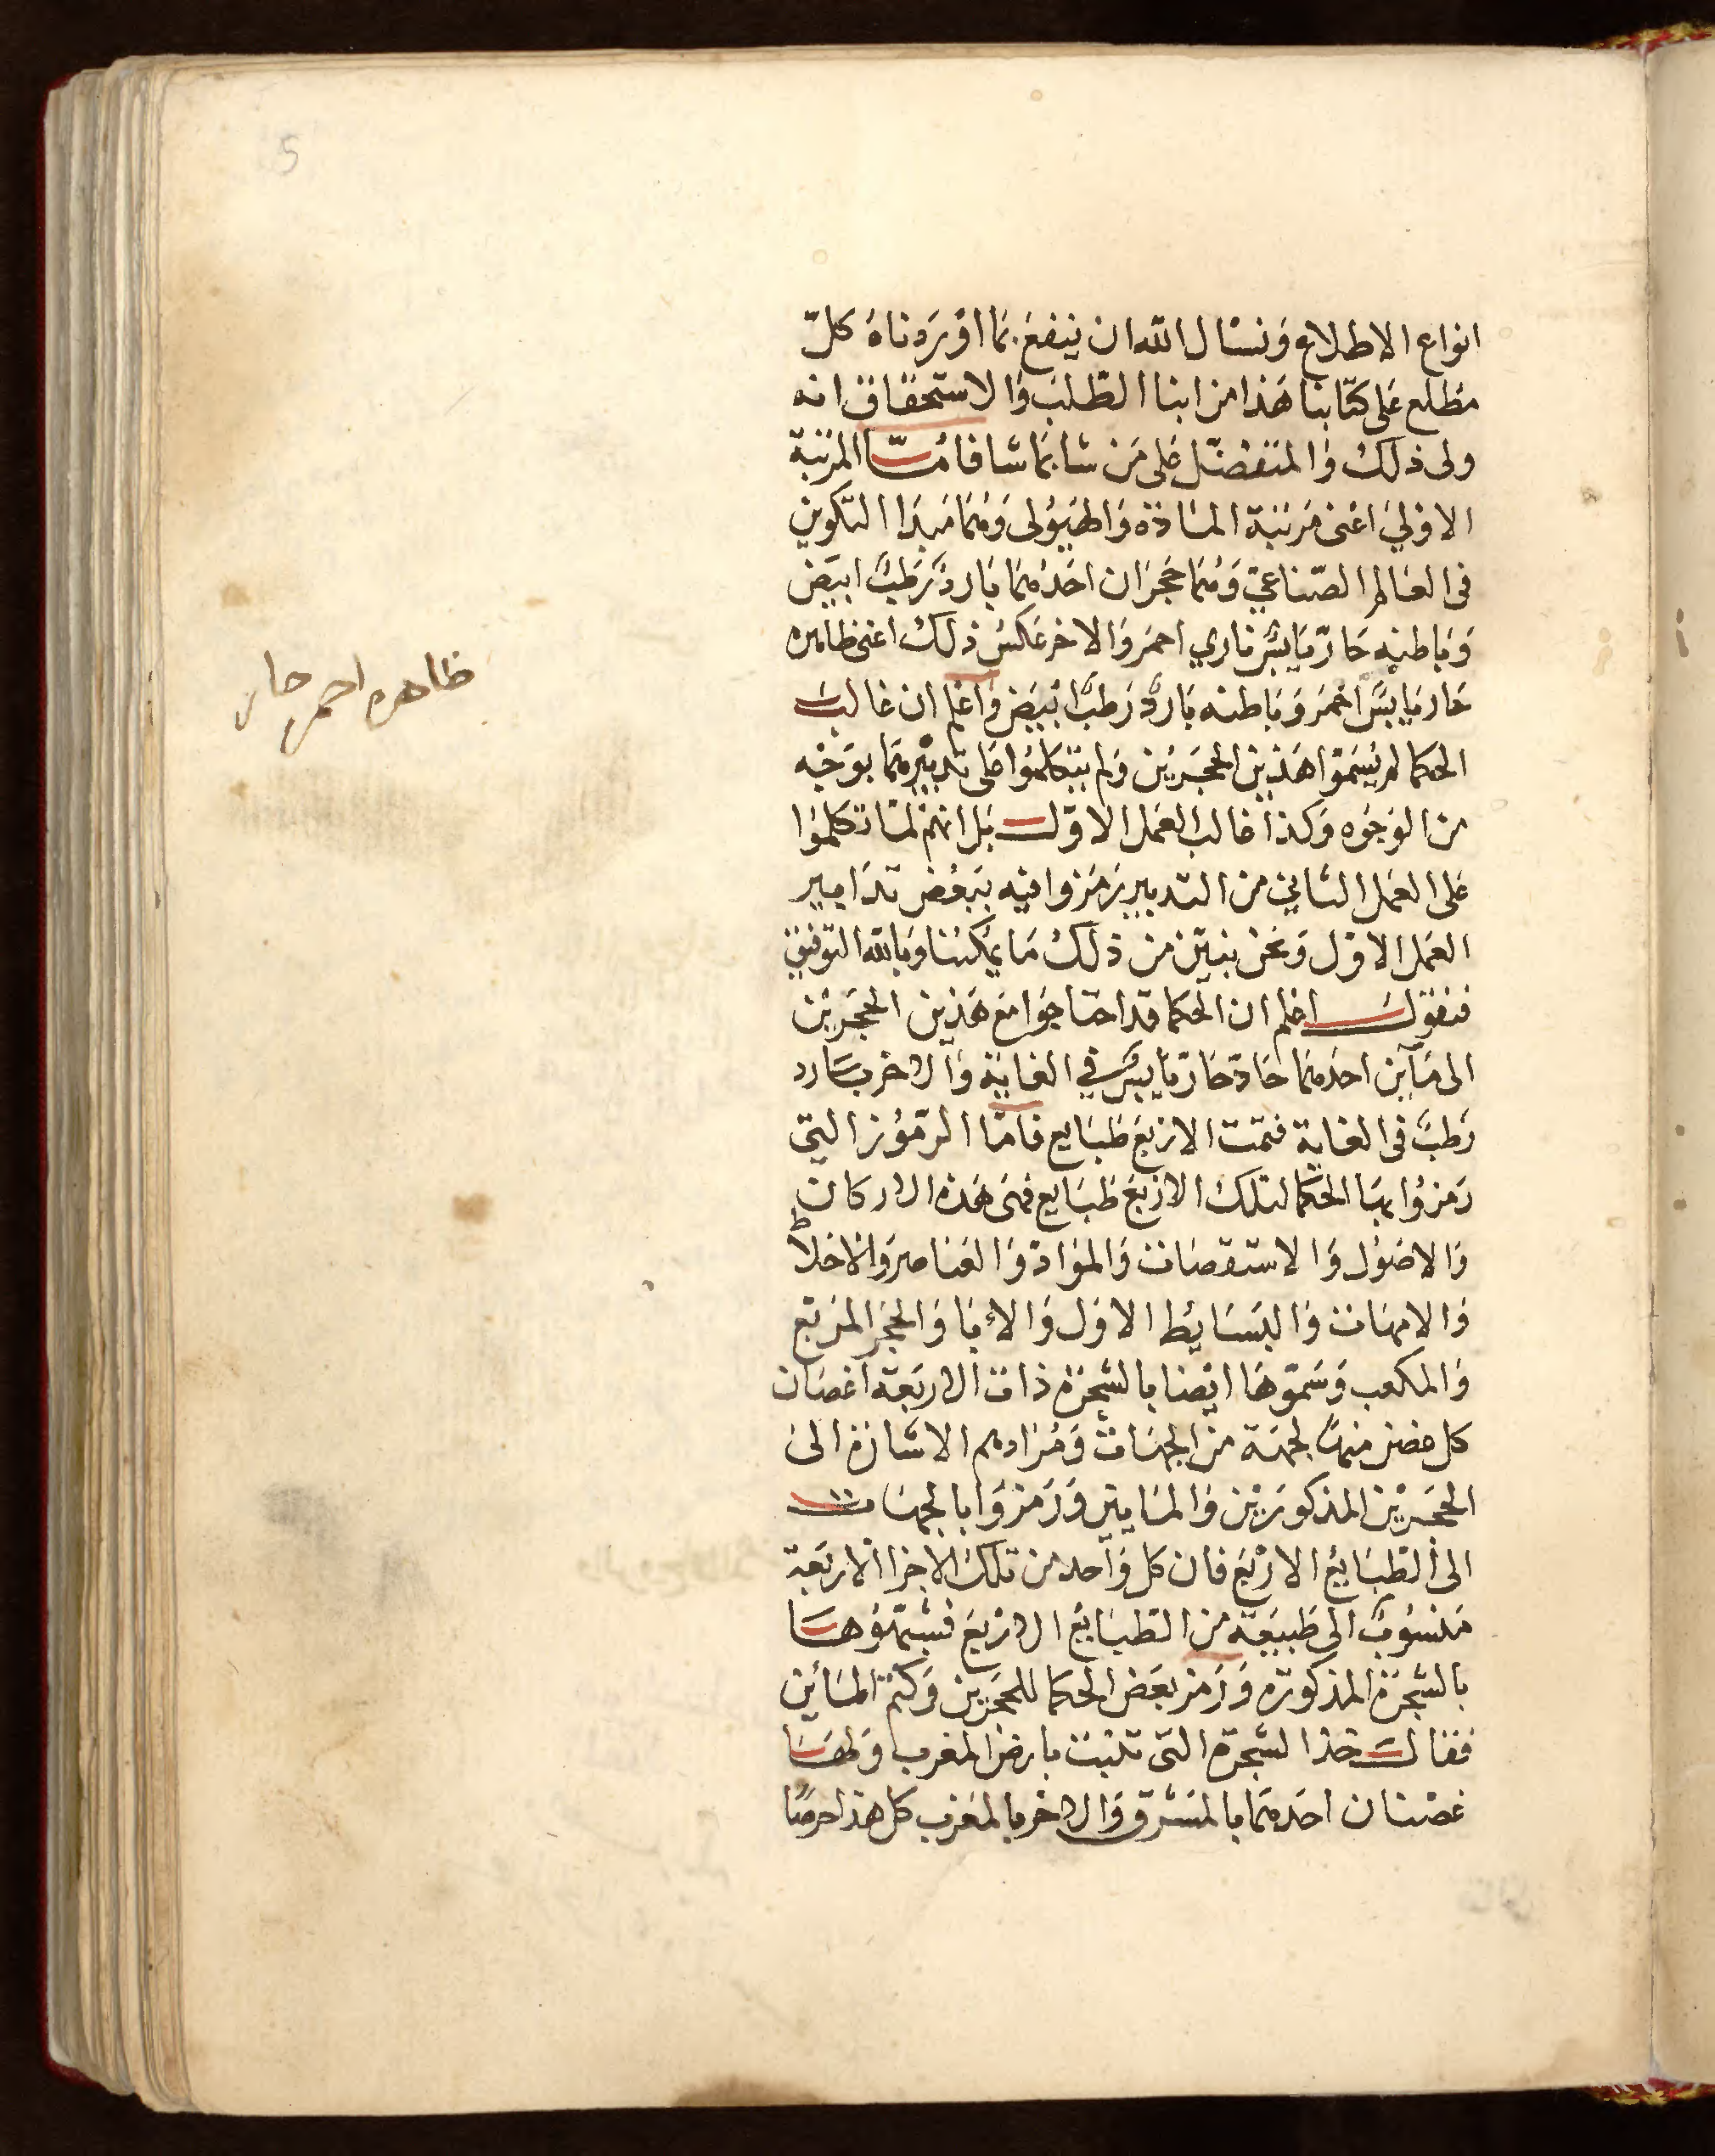 5
انواع الاطلاع وَنسْال الله ان ينفعَ بمَا اوْرَدناهُ كلّ
مطّلع عَلى كتابنا هَذا من ابنا الطّلبَ وَالاستحقاق انه
ولى ذلكَ وَالمتفضّل عَلى مَن شا بمَا شا فامّا المرَتبة
الاوْليَ اعْنى مَرتبَة المَادّة وَالهَيُولى وَهُمَا مَبدَا التكوين
فى العَالم الصّناعيّ وَهُمَا حَجرَان احَدهُمَا بَاردٌ رَطبٌ ابيَض
وَبَاطنه حَارّ يَابسٌ ناري احمرَ وَالاخر عَكسُ ذلكَ اعْنى ظاهره
حَار يَابسٌ احْمرَ وَبَاطنه بَاردٌ رَطبٌ ابْيَض وَاعْلم ان غالبَ
الحكما لم يُسَمّوُا هَذين الحجَرَيْن وَلم يتكلمُوا عَلى تدبيْرهمَا بوَجْه
من الوُجُوه وَكذا غالب العَمل الاوّل بَل انهمْ لمَّا تكلمُوا
عَلى العَمل الثاني من التدبير رَمَزوا فيْه ببَعْض تدَابير
العَمل الاوّل وَنحْن نبَيّن من ذلكَ مَا يمكننا وَبالله التّوفيق
فنقوُل اعْلم ان الحكما قد احتاجُوا مَع هَذين الحجَرَيْن
الى مَآين احدهُمَا حَادّ حَارّ يَابسٌ في الغايَة وَالاخر بَارد
رَطبٌ فى الغايَة فتمّت الارْبَع طبَايع فامّا الرّمُوز التى
رَمَزوُا بهَا الحكما لتلكَ الارْبَع طبَايع فهىَ هَذه الاركان
وَالاصُول وَالاستقصَات وَالموَادّ وَالعَناصر وَالاخلاط
وَالامهَات وَالبسَايُط الاوَل وَالاۤبا وَالحجَر المرَبّع
وَالمكعب وَسَمّوهَا ايْضا بالشجَرَة ذات الارْبَعَة اغصَان
كل غصن منهَا لجهَة من الجهَات وَمُرَادهم الاشارَة الى
الحجَرَيْن المذكورَيْن وَالمَايين وَرَمزوَا بالجهَات
الى الطّبَايُع الارْبَع فان كل وَاحد من تلكَ الاجزا الارْبَعَة
مَنسُوبٌ الى طَبيعَة من الطّبَايُع الارْبَع فسَمّوُهَا
بالشجَرَة المذكورَة وَرَمز بَعَض الحكما للحجَرَين وَكتم المَائين
فقال خذ الشجَرَة التى تنبت بارض المغرب وَلهَا
غصْنان احَدهُمَا بالمشرق وَالاخر بالمغرب كل هذا حرصًا
ظاهره احمر حار